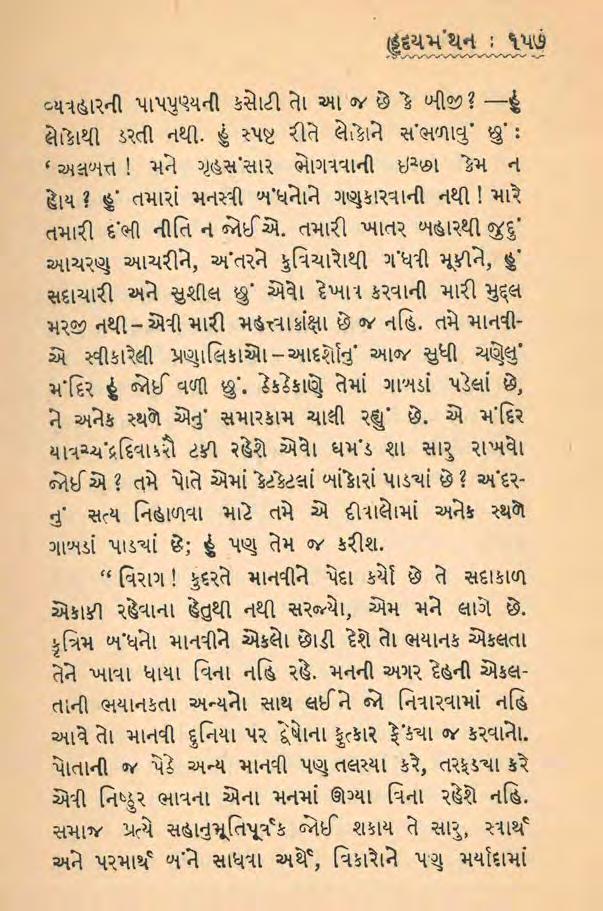 હૃદયમંથન : ૧૫૭
વ્યવહારની પાપપુણ્યની કસોટી તો આ જ છે કે બીજી? —હું
લોકોથી ડરતી નથી. હું સ્પષ્ટ રીતે લોકોને સંભળાવું છું :
‘અલબત્ત! મને ગૃહસંસાર ભોગવવાની ઇચ્છા કેમ ન
હોય ? હું તમારાં મનસ્વી બંધનોને ગણકારવાની નથી! મારે
તમારી દંભી નીતિ ન જોઈએ. તમારી ખાતર બહારથી જુદું
આચરણ આચરીને, અંતરને કુવિચારોથી ગંધવી મૂકીને, હું
સદાચારી અને સુશીલ છું એવો દેખાવ કરવાની મારી મુદ્દલ
મરજી નથી – એવી મારી મહત્ત્વાકાંક્ષા છે જ નહિ. તમે માનવી-
એ સ્વીકારેલી પ્રણાલિકાઓ – આદર્શોનું આજ સુધી ચણેલું
મંદિર હું જોઈ વળી છું. ઠેકઠેકાણે તેમાં ગાબડાં પડેલાં છે,
ને અનેક સ્થળે એનું સમારકામ ચાલી રહ્યું છે. એ મંદિર
યાવચ્ચંદ્રદિવાકરૌ ટકી રહેશે એવો ઘમંડ શા સારુ રાખવો
જોઈએ ? તમે પોતે એમાં કેટકેટલાં બાંકોરાં પાડ્યાં છે ? અંદર-
નું સત્ય નિહાળવા માટે તમે એ દીવાલોમાં અનેક સ્થળે
ગાબડાં પાડ્યાં છે; હું પણ તેમ જ કરીશ.
“ વિરાગ! કુદરતે માનવીને પેદા કર્યો છે તે સદાકાળ
એકાકી રહેવાના હેતુથી નથી સરજ્યો, એમ મને લાગે છે.
કૃત્રિમ બંધનો માનવીને એકલો છોડી દેશે તો ભયાનક એકલતા
તેને ખાવા ધાયા વિના નહિ રહે. મનની અગર દેહની એકલ-
તાની ભયાનકતા અન્યનો સાથ લઈને જો નિવારવામાં નહિ
આવે તો માનવી દુનિયા પર દ્વેષોના ફુત્કાર ફેંક્યા જ કરવાનો.
પોતાની જ પેઠે અન્ય માનવી પણ તલસ્યા કરે, તરફડ્યા કરે
એવી નિષ્ઠુર ભાવના એના મનમાં ઊગ્યા વિના રહેશે નહિ.
સમાજ પ્રત્યે સહાનુભૂતિપૂર્વક જોઈ શકાય તે સારુ, સ્વાર્થ
અને પરમાર્થ બંને સાધવા અર્થે, વિકારોને પણ મર્યાદામાં